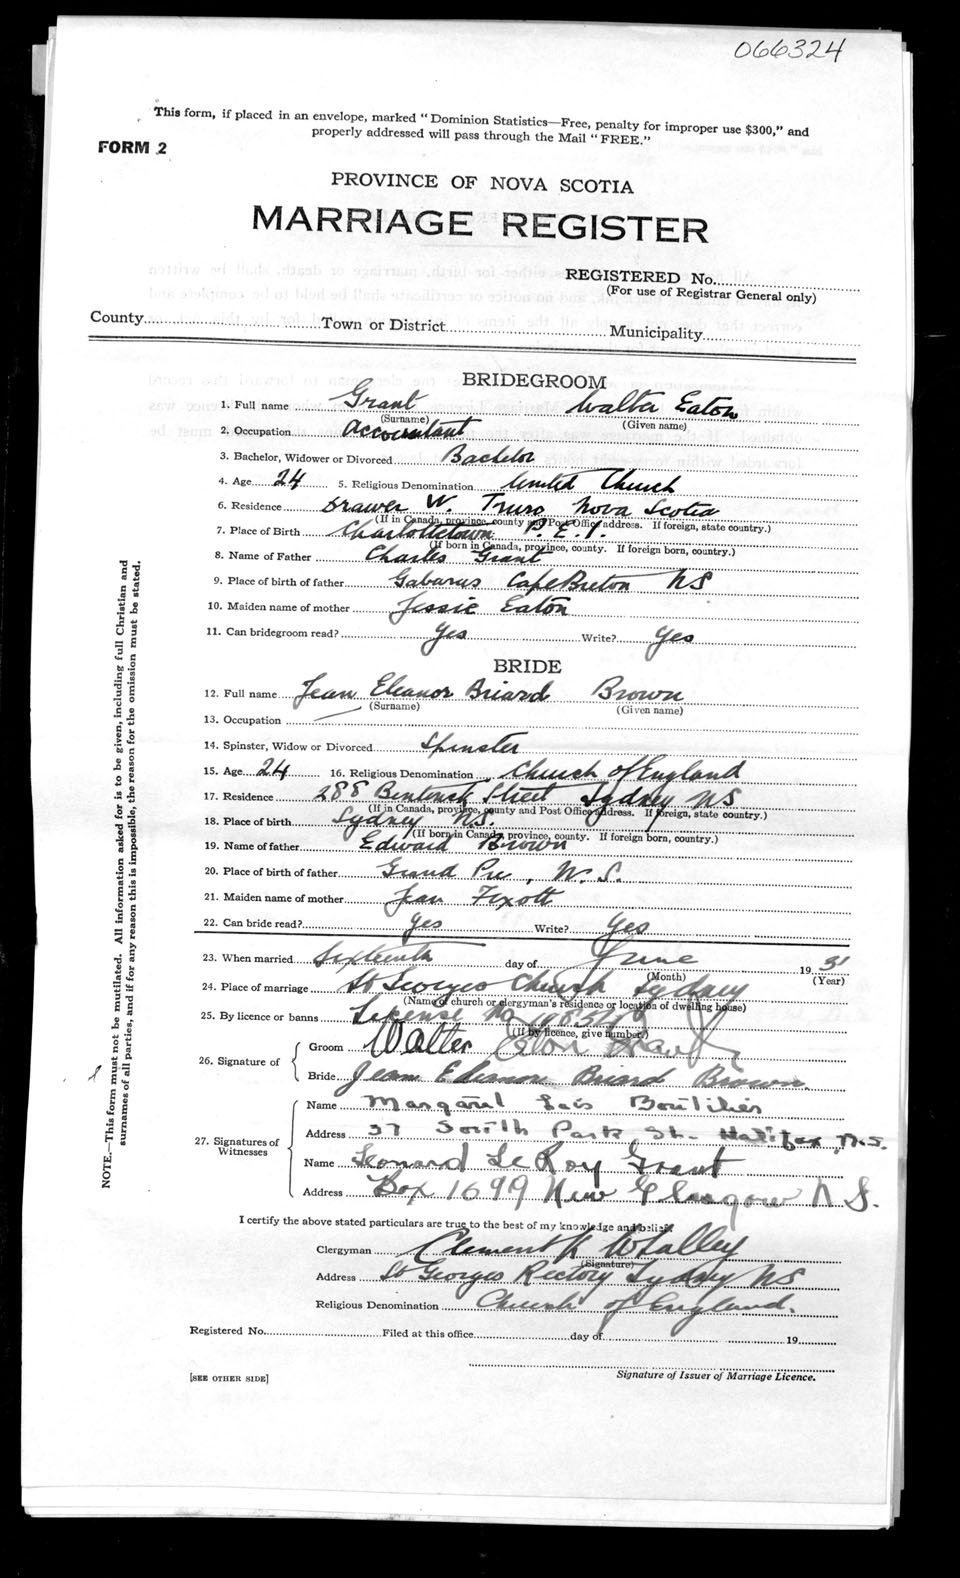 066324
This form, if placed in an envelope, marked "Dominion Statistics—Free, penalty for improper use $300," and
properly addressed will pass through the Mail "FREE."
FORM 2
PROVINCE OF NOVA SCOTIA
MARRIAGE REGISTER
REGISTERED No.
(For use of Registrar General only)
County Town or District Municipality
BRIDEGROOM
1. Full name Grant Walter Eaton
(Surname) (Given name)
2. Occupation Accountant
3. Bachelor, Widower or Divorced Bachelor
4. Age 24 5. Religious Denomination United Church
6. Residence Drawer W. Truro Nova Scotia
(If in Canada, province, county and Post Office address. If foreign, state country.)
7. Place of Birth Charlottetown P.E.I.
(If born in Canada, province, county. If foreign born, country.)
8. Name of Father Charles Grant
9. Place of birth of father Gabarus Cape Breton NS
10. Maiden name of mother Jessie Eaton
11. Can bridegroom read? Yes Write? Yes
BRIDE
12. Full name Jean Eleanor Briard Brown
(Surname) (Given name)
13. Occupation
14. Spinster, Widow or Divorced Spinster
15. Age 24 16. Religious Denomination Church of England
17. Residence 288 Bentinck Street Sydney NS
(If in Canada, province, county and Post Office address. If foreign, state country.)
18. Place of birth Sydney N.S.
(If born in Canada province, county. If foreign born, country.)
19. Name of father Edward Brown
20. Place of birth of father Grand Pre, N.S.
21. Maiden name of mother Jean Fixott
22. Can bride read? Yes Write? Yes
23. When married Sixteenth day of June 1931
(Month) (Year)
24. Place of marriage St Georges Church Sydney
(Name of church or clergyman's residence or location of dwelling house)
25. By licence or banns License No
(If by licence, give number.)
26. Signature of
Groom Walter Eaton Grant
Bride Jean Eleanor Briard Brown
27. Signatures of
Witnesses
Name Margaret Lois Boutilier
Address 37 South Park St. Halifax, N.S.
Name Leonard LeRoy Grant
Address Box 1699 New Glasgow N.S.
I certify the above stated particulars are true to the best of my knowledge and belief.
Clergyman Clement K Whalley
(Signature)
Address St Georges Rectory Sydney NS
Religious Denomination Church of England.
Registered No. Filed at this office day of 19
Signature of Issuer of Marriage Licence.
[SEE OTHER SIDE]
NOTE.—This form must not be mutilated. All information asked for is to be given, including full Christian and
surnames of all parties, and if for any reason this is impossible, the reason for the omission must be stated.